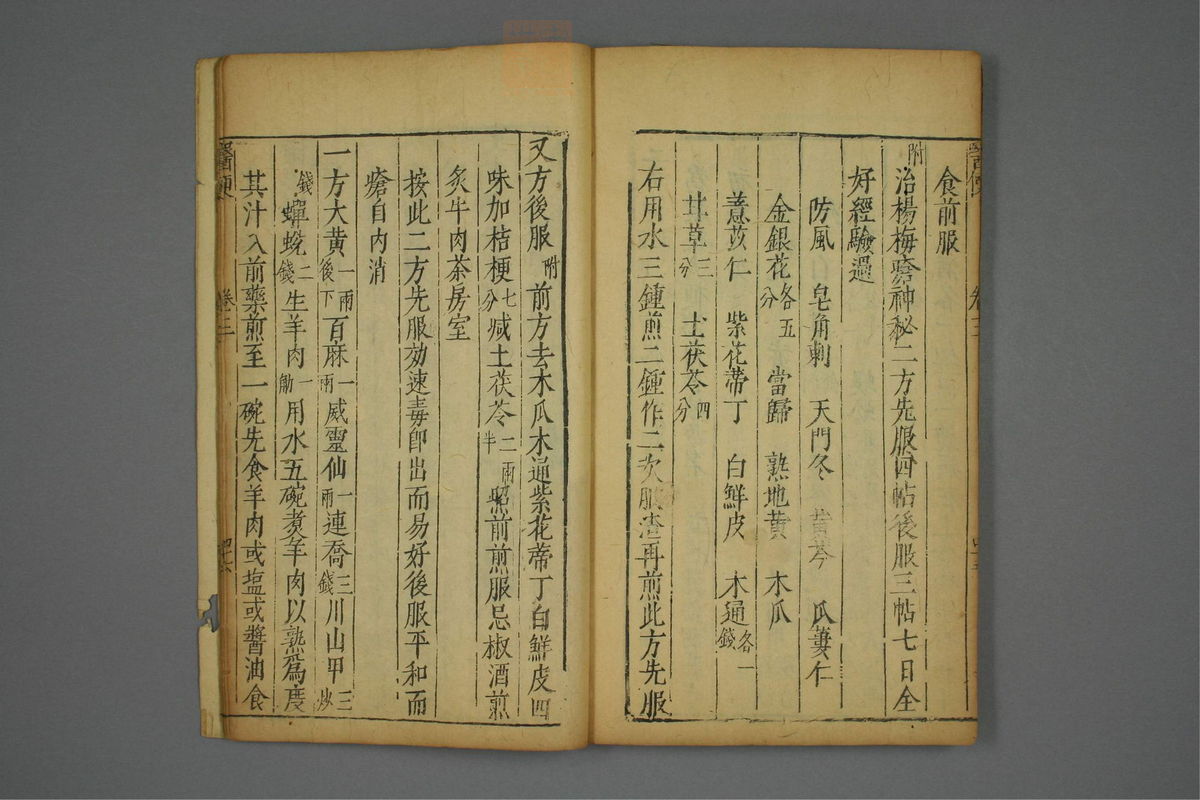 食前服
附治楊梅瘡神秘二方先服四帖後服三帖七日全
好經驗過
防風 皂角刺 天門冬 黄芩 瓜蔞仁
金銀花各五分 當歸 熟地黄 木瓜
薏苡仁 紫花蒂丁 白鮮皮 木通各一錢
甘草三分 土茯苓四分
右用水三鍾煎二鍾作二次服渣再煎此方先服
又方後服附前方去木瓜木通紫花蒂丁白鮮皮四
味加桔梗七分減土茯苓二兩半照前煎服忌椒酒煎
炙牛肉茶房室
按此二方先服効速毒即出而易好後服平和而
瘡自内消
一方大黄一兩後下百麻一兩威靈仙一兩連喬三錢川山甲炒三
錢蟬蛻二錢生羊肉一觔用水五碗煑羊肉以熟爲度
其汁入前藥煎至一碗先食羊肉或塩或醬油食
醫便 卷三